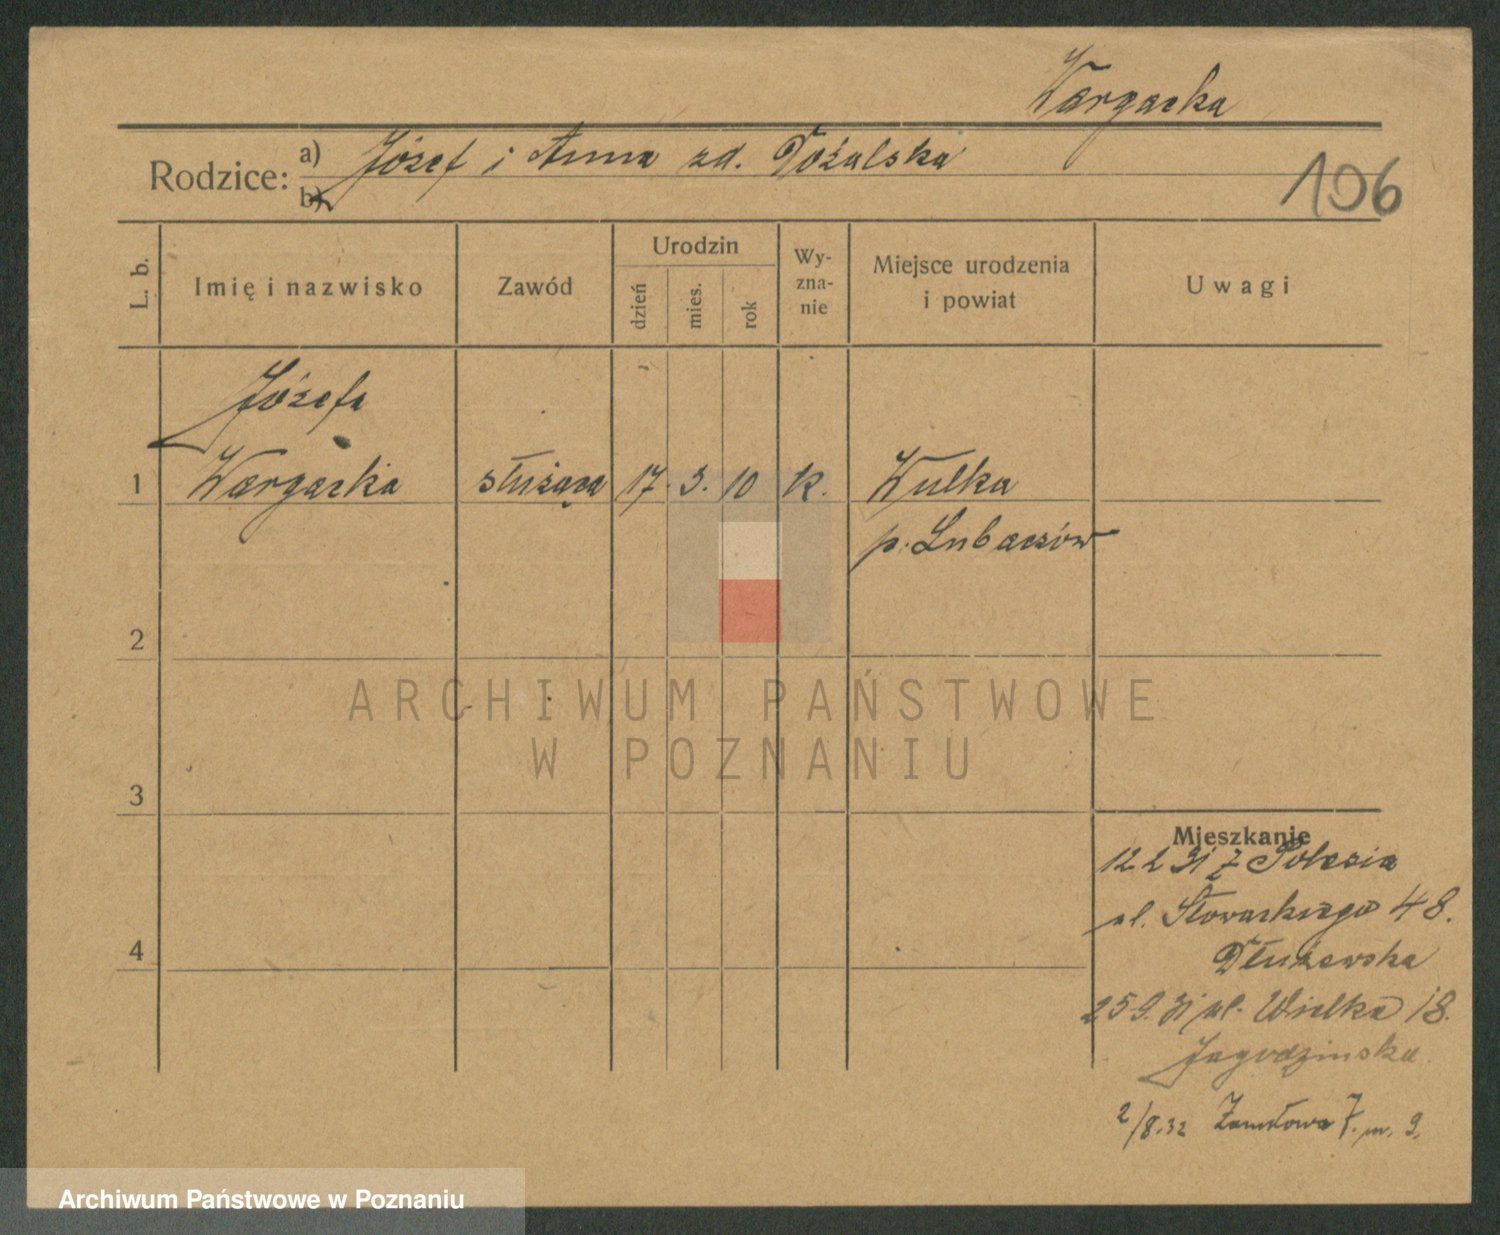 Wargacka
Rodzice: a) Józef i Anna zd. Dożalska
b)
196
L. b.
Imię i nazwisko
Zawód
Urodzin
dzień
mies.
rok
Wy-
zna-
nie
Miejsce urodzenia
i powiat
Uwagi
Józefa
1 Wargacka służąca 17. 3. 10 k. Wulka
p. Lubaczów
2
ARCHIWUM PAŃSTWOWE
W POZNANIU
3
4
Mieszkanie
12 2 31 z Polesia
ul. Słowackiego 48.
Dłużewska
25 9. 31 ul. Wielka 18.
Jagodzinska.
2/8.32 7. m. 9.
Archiwum Państwowe w Poznaniu